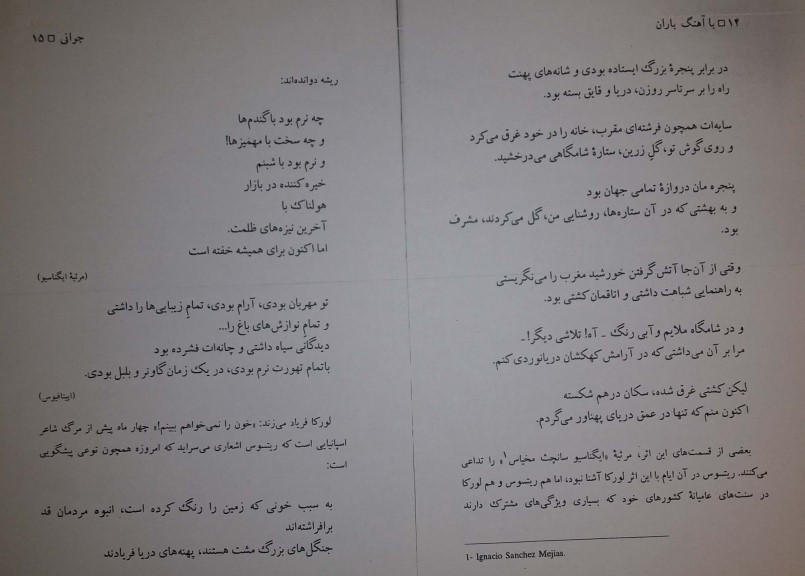 ۱۴ □ با آهنگ باران
در برابر پنجرهٔ بزرگ ایستاده بودی و شانه‌های پهنت
راه را بر سرتاسر روزن، دریا و قایق بسته بود.
سایه‌ات همچون فرشته‌ای مقرب، خانه را در خود غرق می‌کرد
و روی گوش تو، گلِ زرین، ستارهٔ شامگاهی می‌درخشید.
پنجره مان دروازهٔ تمامی جهان بود
و به بهشتی که در آن ستاره‌ها، روشنایی من، گل می‌کردند، مشرف
بود.
وقتی از آن‌جا آتش گرفتن خورشید مغرب را می‌نگریستی
به راهنمایی شباهت داشتی و اتاقمان کشتی بود.
و در شامگاه ملایم و آبی رنگ ـ آه! تلاشی دیگر! ـ
مرا بر آن می‌داشتی که در آرامش کهکشان دریانوردی کنم.
لیکن کشتی غرق شده، سکان درهم شکسته
اکنون منم که تنها در عمق دریای پهناور می‌گردم.
بعضی از قسمت‌های این اثر، مرثیهٔ «ایگناسیو سانچث مخیاس۱» را تداعی
می‌کنند. ریتسوس در آن ایام با این اثر لورکا آشنا نبود، اما هم ریتسوس و هم لورکا
در سنت‌های عامیانهٔ کشورهای خود که بسیاری ویژگی‌های مشترک دارند
1- Ignacio Sanchez Mejias.
جوانی □ ۱۵
ریشه دوانده‌اند:
چه نرم بود با گندم‌ها
و چه سخت با مهمیزها!
و نرم بود با شبنم
خیره کننده در بازار
هولناک با
آخرین نیزه‌های ظلمت.
اما اکنون برای همیشه خفته است
(مرثیهٔ ایگناسیو)
تو مهربان بودی، آرام بودی، تمامِ زیبایی‌ها را داشتی
و تمامِ نوازش‌های باغ را...
دیدگانی سیاه داشتی و چانه‌ات فشرده بود
باتمام تهورت نرم بودی، در یک زمان گاونر و بلبل بودی.
(اپیتافیوس)
لورکا فریاد می‌زند: «خون را نمی‌خواهم ببینم!» چهار ماه پیش از مرگ شاعر
اسپانیایی است که ریتسوس اشعاری می‌سراید که امروزه همچون نوعی پیشگویی
است:
به سبب خونی که زمین را رنگ کرده است، انبوه مردمان قد
برافراشته‌اند
جنگل‌های بزرگ مشت هستند، پهنه‌های دریا فریادند